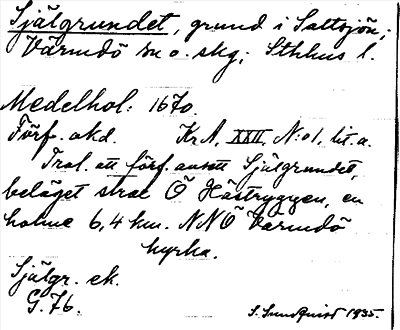 Själgrundet, grund i Saltsjön;
Värmdö sn o. skg; Sthlms l.
Medelhol: 1670.
Förf. okd. KrA, XXII, N:o 1, lit. a.
Trol. ett förf. avsett Själgrundet,
beläget strax Ö Hästryggen, en
holme 6,4 km. NNO Värmdö
kyrka.
Själgr. ek.
G. 76.
S. Sundquist 1935.